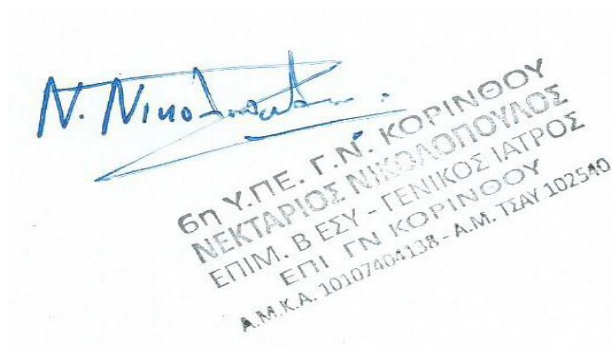 Ν. Νικολοπουλος
6η Υ.ΠΕ. Γ.Ν. ΚΟΡΙΝΘΟΥ
ΝΕΚΤΑΡΙΟΣ ΝΙΚΟΛΟΠΟΥΛΟΣ
ΕΠΙΜ. Β ΕΣΥ - ΓΕΝΙΚΟΣ ΙΑΤΡΟΣ
ΕΠΙ ΓΝ ΚΟΡΙΝΘΟΥ
Α.Μ.Κ.Α. 10107404138 - Α.Μ. ΤΣΑΥ 102540